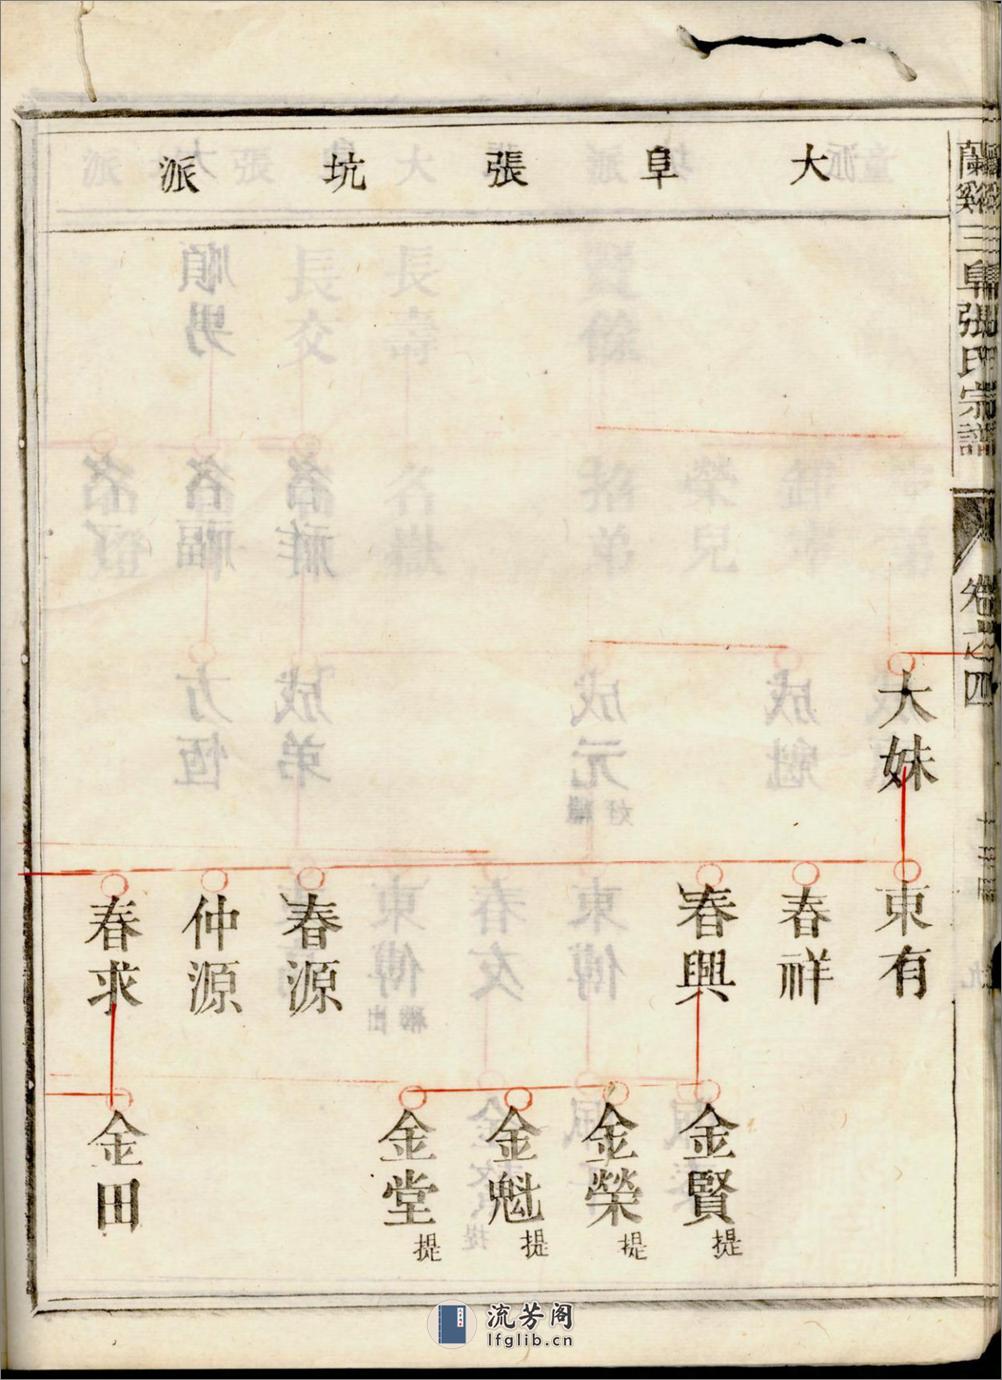 大阜張坑派
蘭谿三阜張氏宗譜
卷之四
大妹
東有
春祥
春興
春源
仲源
春求
金賢 提
金榮 提
金魁 提
金堂 提
金田
流芳阁
lfglib.cn